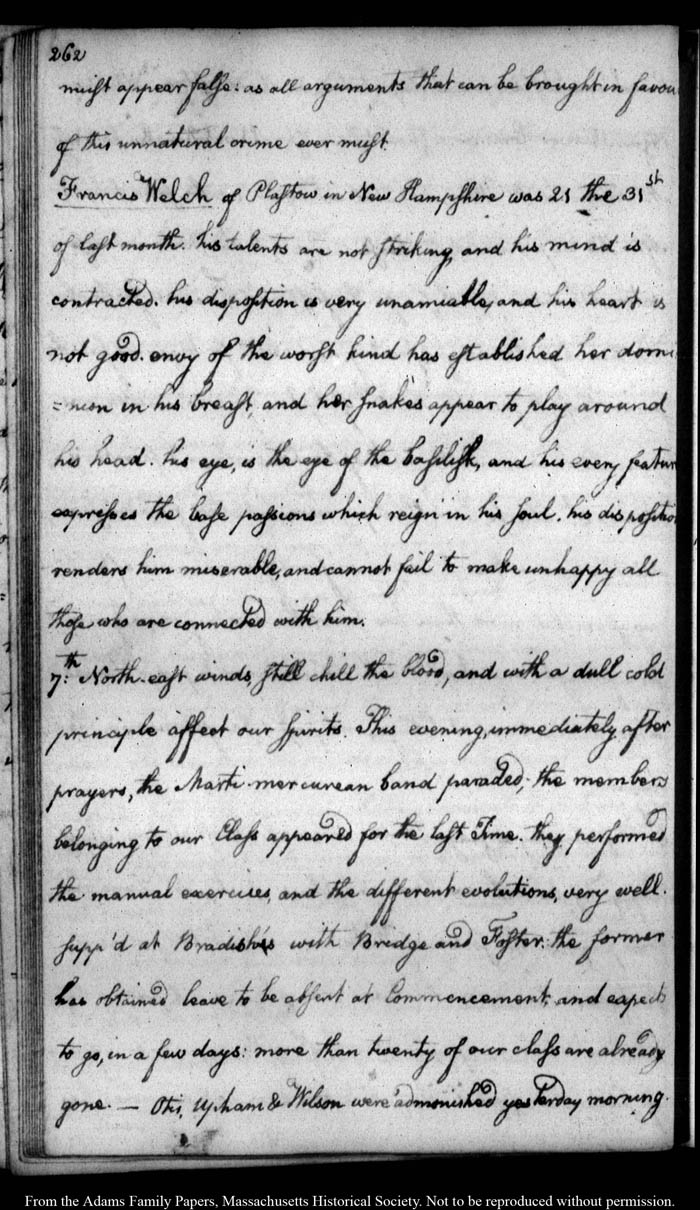 262
must appear false: as all arguments that can be brought in favou
of this unnatural crime ever must.
Francis Welch of Plastow in New Hampshire was 21 the 31st
of last month. his talents are not striking, and his mind is
contracted. his disposition is very unamiable, and his heart is
not good. envy of the worst kind has established her domi
=nion in his breast, and her snakes appear to play around
his head. his eye, is the eye of the basilisk, and his every featur
expresses the base passions which reign in his soul. his dispositio
renders him miserable, and cannot fail to make unhappy all
those who are connected with him.
7:th North-east winds, still chill the blood, and with a dull cold
principle affect our spirits. This evening, immediately after
prayers, the Marti-mercurean band paraded; the members
belonging to our Class appeared for the last Time. they performed
the manual exercises, and the different evolutions, very well.
supp'd at Bradish's with Bridge and Foster: the former
has obtained leave to be absent at Commencement, and expects
to go, in a few days: more than twenty of our class are already
gone. — Otis, Upham & Wilson were admonished yesterday morning.
From the Adams Family Papers, Massachusetts Historical Society. Not to be reproduced without permission.